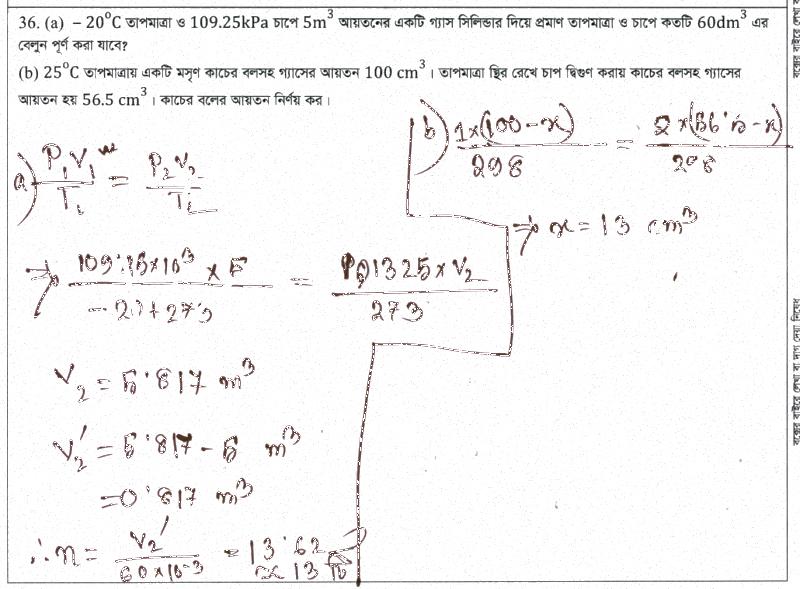 36. (a) – 20°C তাপমাত্রা ও 109.25kPa চাপে 5m³ আয়তনের একটি গ্যাস সিলিন্ডার দিয়ে প্রমাণ তাপমাত্রা ও চাপে কতটি 60dm³ এর
বেলুন পূর্ণ করা যাবে?
(b) 25°C তাপমাত্রায় একটি মসৃণ কাচের বলসহ গ্যাসের আয়তন 100 cm³। তাপমাত্রা স্থির রেখে চাপ দ্বিগুণ করায় কাচের বলসহ গ্যাসের
আয়তন হয় 56.5 cm³। কাচের বলের আয়তন নির্ণয় কর।
a) P₁V₁/T₁ = P₂V₂/T₂
⇒ 109.25×10³ × 5 / -20+273 = 101325 × V₂ / 273
V₂ = 5.817 m³
V₂' = 5.817 - 5 m³
= 0.817 m³
∴ n = V₂' / 60×10⁻³ = 13.62
≈ 13 টি
b) 1×(100-x) / 298 = 2×(56.5-x) / 298
⇒ x = 13 cm³